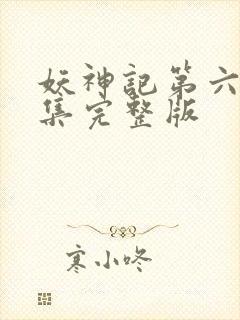 妖神記第六
集完整版
寒小咚